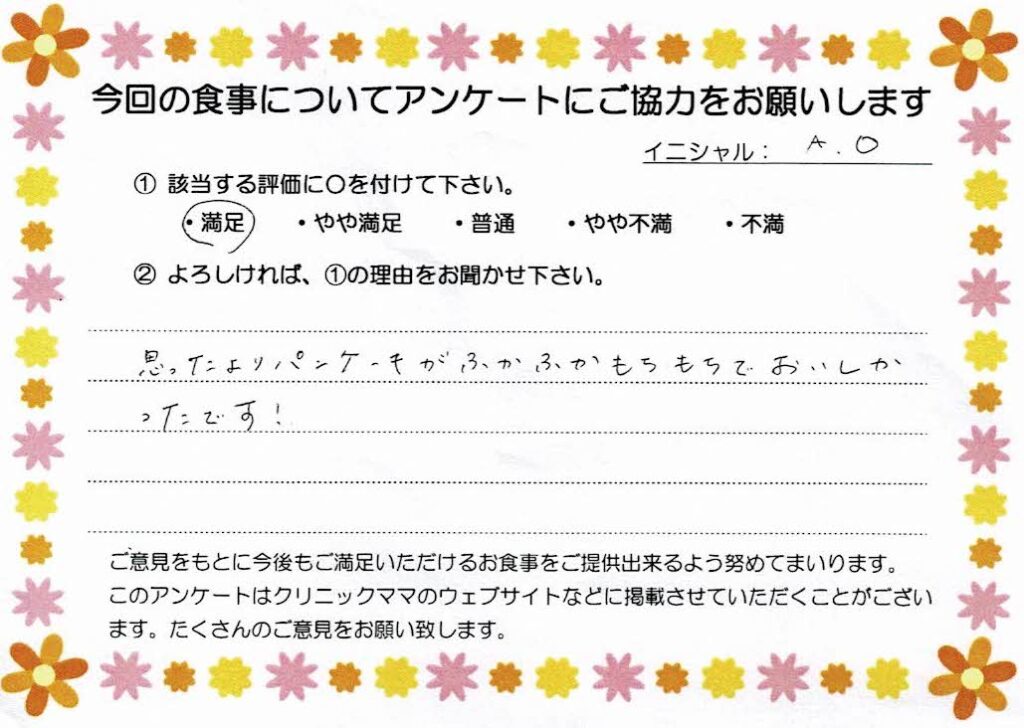 今回の食事についてアンケートにご協力をお願いします
イニシャル： A.O
① 該当する評価に〇を付けて下さい。
・満足 ・やや満足 ・普通 ・やや不満 ・不満
② よろしければ、①の理由をお聞かせ下さい。
思ったよりパンケーキがふかふかもちもちでおいしか
ったです！
ご意見をもとに今後もご満足いただけるお食事をご提供出来るよう努めてまいります。
このアンケートはクリニックママのウェブサイトなどに掲載させていただくことがござい
ます。たくさんのご意見をお願い致します。